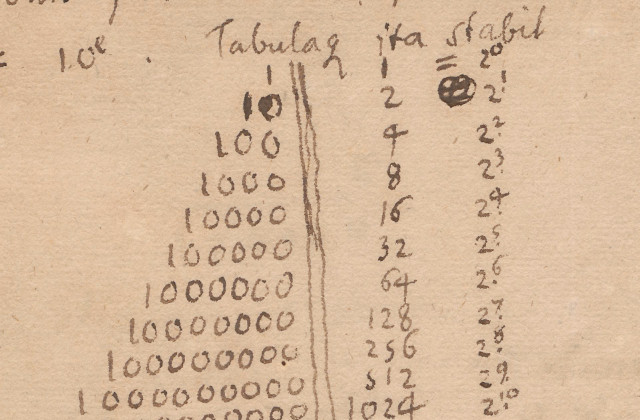 = 10^e . Tabulaq ita stabit
1 1 = 2^0
10 2 2^1
100 4 2^2
1000 8 2^3
10000 16 2^4
100000 32 2^5
1000000 64 2^6
10000000 128 2^7
100000000 256 2^8
1000000000 512 2^9
1024 2^10